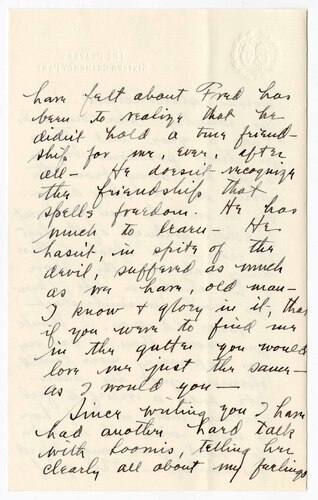 have felt about Fred has
been to realize that he
didn't hold a true friend-
ship for me, ever, after
all— He doesn't recognize
the friendship that
spells freedom. He has
much to learn— He
hasn't, in spite of the
devil, suffered as much
as we have, old man—
I know & glory in it, that
if you were to find me
in the gutter you would
love me just the same—
as I would you—
Since writing you I have
had another hard talk
with Loomis, telling her
clearly all about my feelings